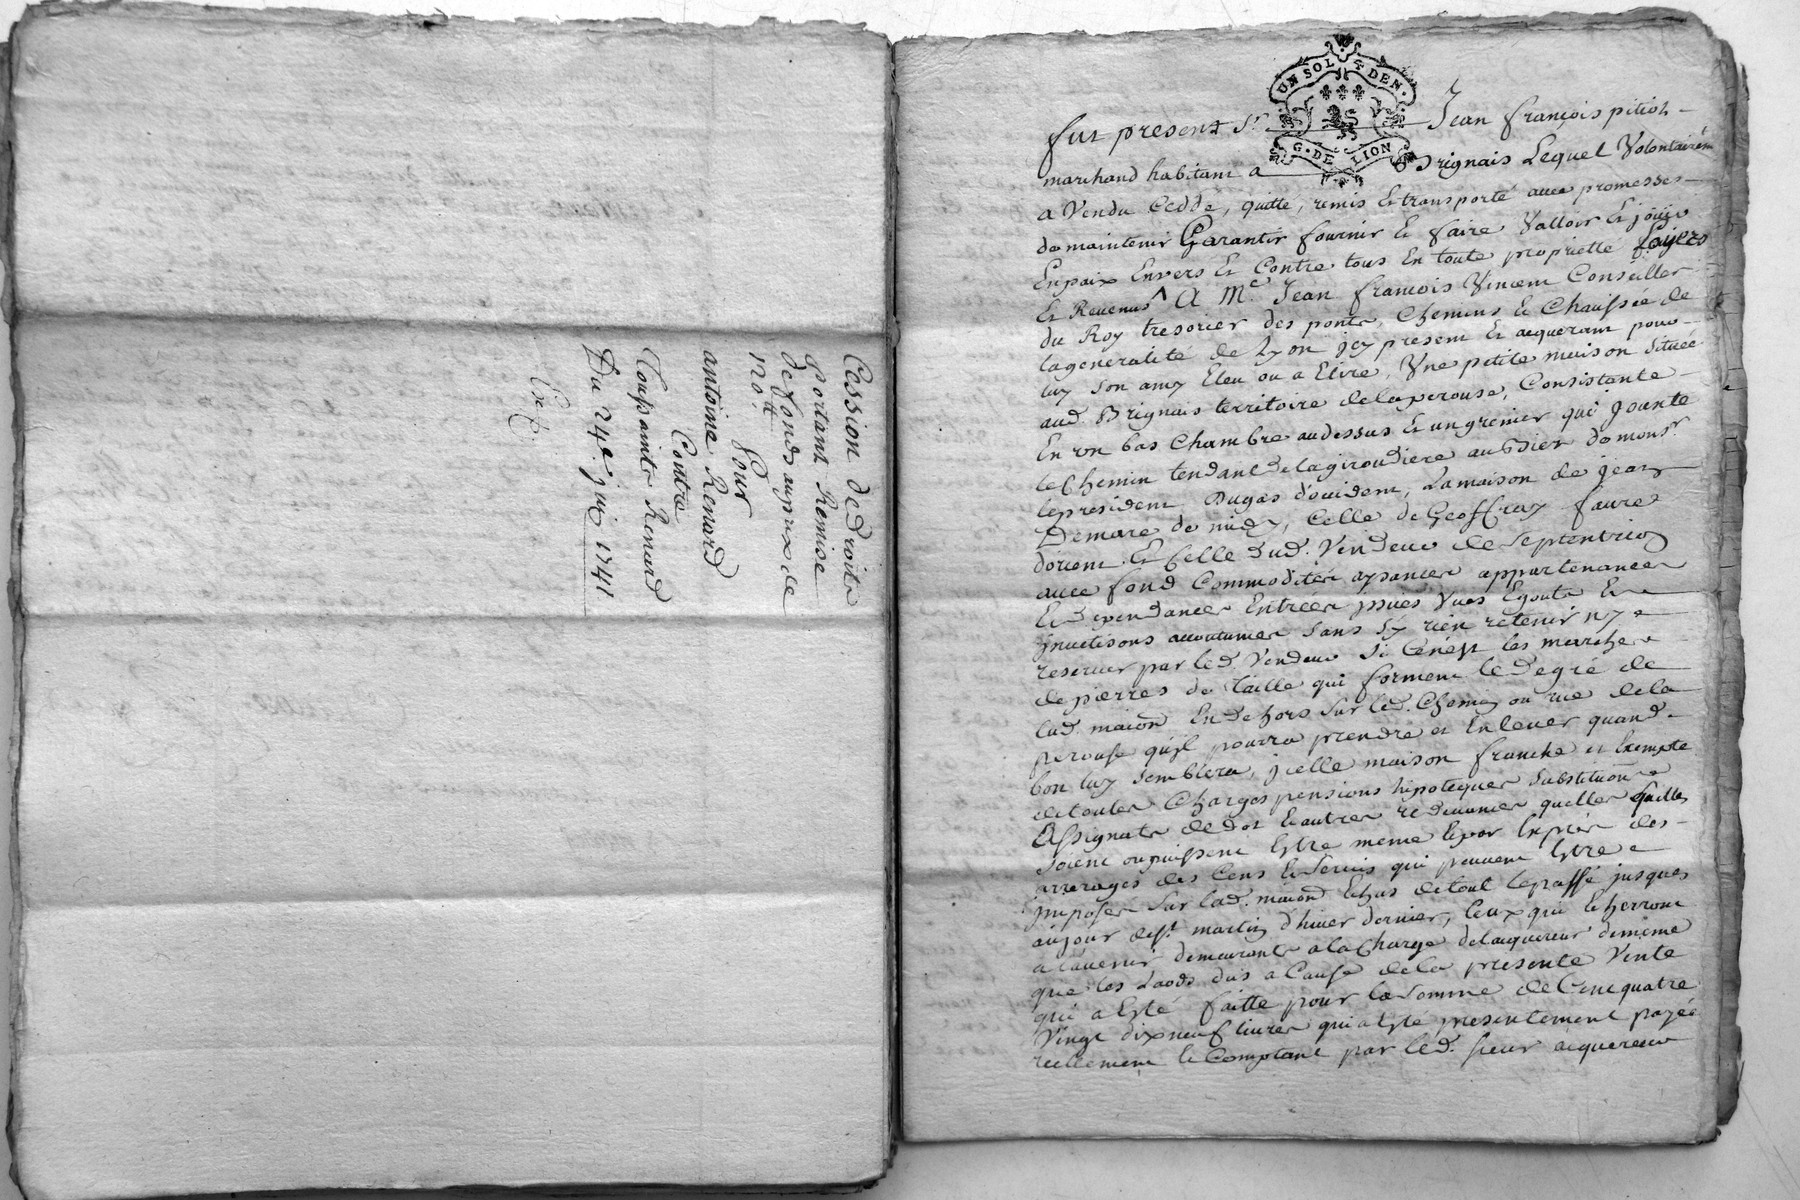 Cession de droits
Portant Remise
de fonds au prix de
120ᵗᵗ
Pour
antoine Renard
Contre
Toussaints Renard
Du 24ᵉ jui 1741
UN SOL 4 DEN.
G. DE LION
fut present Sʳ Jean françois pitiot
marchand habitant a Brignais Lequel Volontairemᵗ
a Vendu Ceddé, quitté, remis Et transporté avec promesses
de maintenir Garantir fournir Et faire Valloir Et joüir
En paix Envers Et Contre tous En toute proprietté
Et Revenus A Mᵉ. Jean francois Vincent Conseiller
du Roy tresorier des ponts, Chemins Et Chaussée de
la generalité de Lyon jcy present Et acquerant pour
luy son amy Eleu ou a Elire, Une petite maison située
aud. Brignais territoire de la perouse, Consistante
En un bas Chambre au dessus Et un grenier qui jouxte
le Chemin tendant de la giroudiere au de monsʳ.
le president Dugas d'occident, La maison de jean
Demare de midy, Celle de Geoffray faure
d'orient Et Celle dud. Vendeur de Septentrion
avec fond Commodités aysances appartenances
Et dependances Entrées jssües Vues Egouts Et
jnuetisons accoutumées Sans s'y rien retenir ny
reserver par led. Vendeur Si Cenést les marches
de pierres de taille qui forment le degré de
lad. maison En dehors sur led. Chemin ou rue de la
perouse qu'jl pourra prendre et Enlever quand
bon luy Semblera, jcelle maison franche et Exempte
de toutes Charges pensions hipoteques substitutions
Assignats de dot Et autres redevances quelles quelles
soient ou puissent Estre meme Et par Exprés des
arrerages des Cens Et Servis qui peuvent Estre
jmposés Sur lad. maison Echus de tout le passé jusques
au jour de Sᵗ. martin d'hiver dernier, Ceux qui Echerront
a l'avenir demeurants a la Charge de l'acquereur de meme
que les Laods dus a Cause de la presente Vente
qui a Esté faitte pour la Somme de Cent quatre
Vingt dix neuf livres qui a Esté presentement payée
reellement Et Comptant par led. sieur acquereur